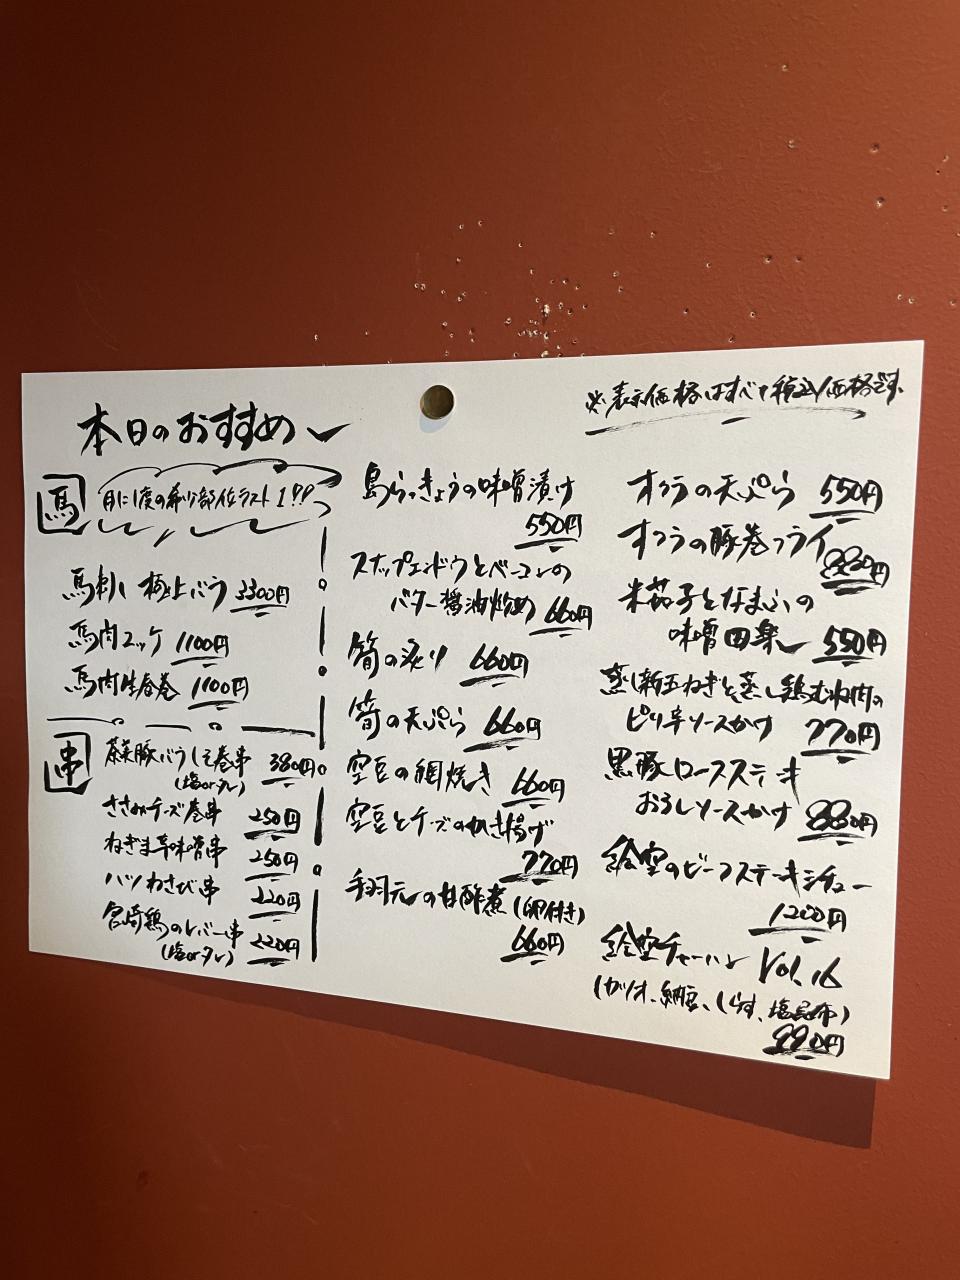 本日のおすすめ
※表示価格はすべて税込価格です。
馬
月に1度の希少部位ラスト1!!
馬刺し 極上バラ 3300円
馬肉ユッケ 1100円
馬肉生春巻 1100円
串
茶美豚バラしそ巻串 380円
(塩orタレ)
ささみチーズ巻串 250円
ねぎま辛味噌串 250円
ハツわさび串 220円
宮崎鶏のレバー串 220円
(塩orタレ)
島らっきょうの味噌漬け
550円
スナップエンドウとベーコンの
バター醤油炒め 660円
筍の炙り 660円
筍の天ぷら 660円
空豆の網焼き 660円
空豆とチーズのかき揚げ
770円
手羽元の甘酢煮(卵付き)
660円
オクラの天ぷら 550円
オクラの豚巻フライ
880円
米茄子となまふの
味噌田楽 550円
蒸し新玉ねぎと蒸し鶏むね肉の
ピリ辛ソースかけ 770円
黒豚ロースステーキ
おろしソースかけ 880円
絵空のビーフステーキシチュー
1200円
絵空チャーハン Vol.16
(ガツオ、納豆、しらす、塩昆布)
990円